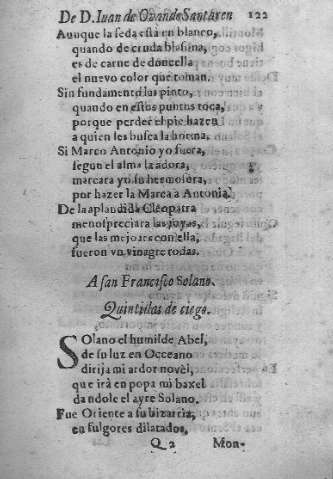 De D. Iuan de Ovande Santaren 122
Aunque la seda està en blanco,
quando de cruda blasona,
es de carne de doncella
el nuevo color que toman.
Sin fundamento las pinto,
quando en estos puntos toca,
porque perder el pie hazen
a quien les busca la
Si Marco Antonio yo fuera,
segun el alma la adora,
marcara yo su hermosura,
por hazer la Marca a Antonia.
De la aplaudida Cleopatra
menospreciara las joyas,
que las mejores con ella,
fueron vn vinagre todas.
A san Francisco Solano.
Quintillas de ciego.
SOlano el humilde Abel,
de su luz en Occeano
dirija mi ardor novèl,
que irà en popa mi baxel
dandole el ayre Solano.
Fue Oriente a su bizarria,
en fulgores dilatados,
Q 2 Mon-